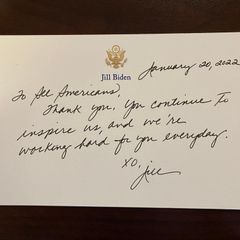 Jill Biden
January 20, 2022
To All Americans,
Thank you. You continue to
inspire us, and we're
working hard for you everyday.
xo,
Jill